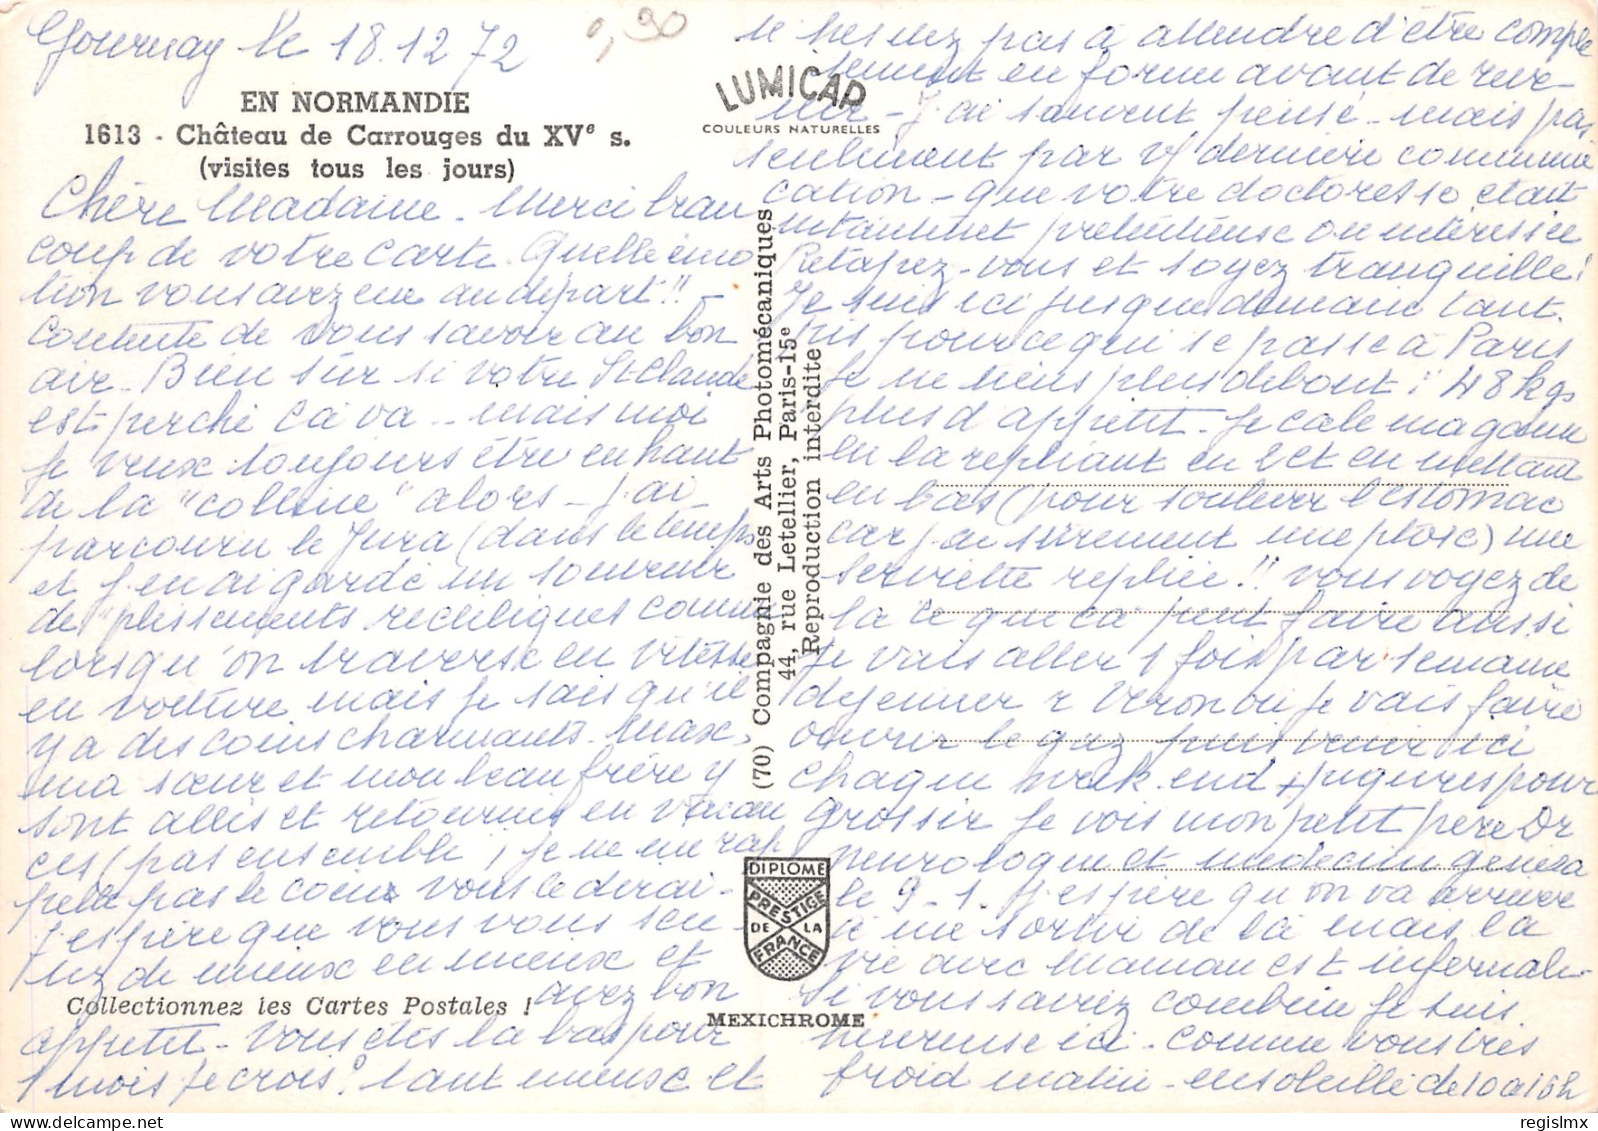 Gournay le 18.12.72
0,90
EN NORMANDIE
1613 - Château de Carrouges du XVe s.
(visites tous les jours)
LUMICAP
COULEURS NATURELLES
Chère Madame. Merci beau
coup de votre carte. Quelle émo
tion vous avez eue au départ!!
contente de vous savoir au bon
air. Bien sûr si votre St Claude
est perché ça va .. mais moi
je veux toujours être en haut
de la "colline" alors - j'ai
parcouru le Jura (dans le temps
et j'en ai gardé un souvenir
de "plissements rectilignes comme
lorsqu'on traverse en vitesse
en voiture mais je sais qu'il
y a des coins charmants. Max,
ma sœur et mon beau frère y
sont allés et retournés en vacan
ces (pas ensemble) je ne me rap
pelle pas le coin vous le
J'espère que vous vous sen
tez de mieux en mieux et
avez bon
appétit - Vous êtes là bas pour
1 mois je crois? tant mieux et
Collectionnez les Cartes Postales !
(70) Compagnie des Arts Photomécaniques
44, rue Letellier, Paris-15e
Reproduction interdite
DIPLOME
PRESTIGE
DE LA
FRANCE
MEXICHROME
n'hesitez pas à attendre d'être complè
tement en forme avant de reve-
nir - J'ai souvent pensé - mais pas
seulement par v/ dernière communi
cation - que votre doctoresse était
prétentieuse ou intéressée
Retapez-vous et soyez tranquille!
Je suis ici jusque demain tant
pis pour ce qui se passe à Paris
Je ne tiens plus debout! 48 kgs
plus d'appétit - Je cale ma gaine
en la repliant en 2 et en mettant
en bas (pour soulever l'estomac
car j'ai sûrement une ptose) une
serviette repliée!! vous voyez de
là ce que ça peut faire aussi
Je vais aller 1 fois par semaine
déjeuner r Véron où je vais faire
ouvrir le gaz puis venir ici
chaque week-end + piqures pour
grossir je vois mon petit père Dr
neurologue et médecin
le 9-1. J'espère qu'on va arriver
à me sortir de là mais la
vie avec Maman est infernale
Si vous saviez combien je suis
heureuse ici - comme vous très
froid matin - ensoleillé de 10 à 16h
regislmx